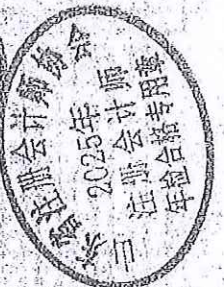 山东省注册会计师协会
2025年
注册会计师
年检合格专用章